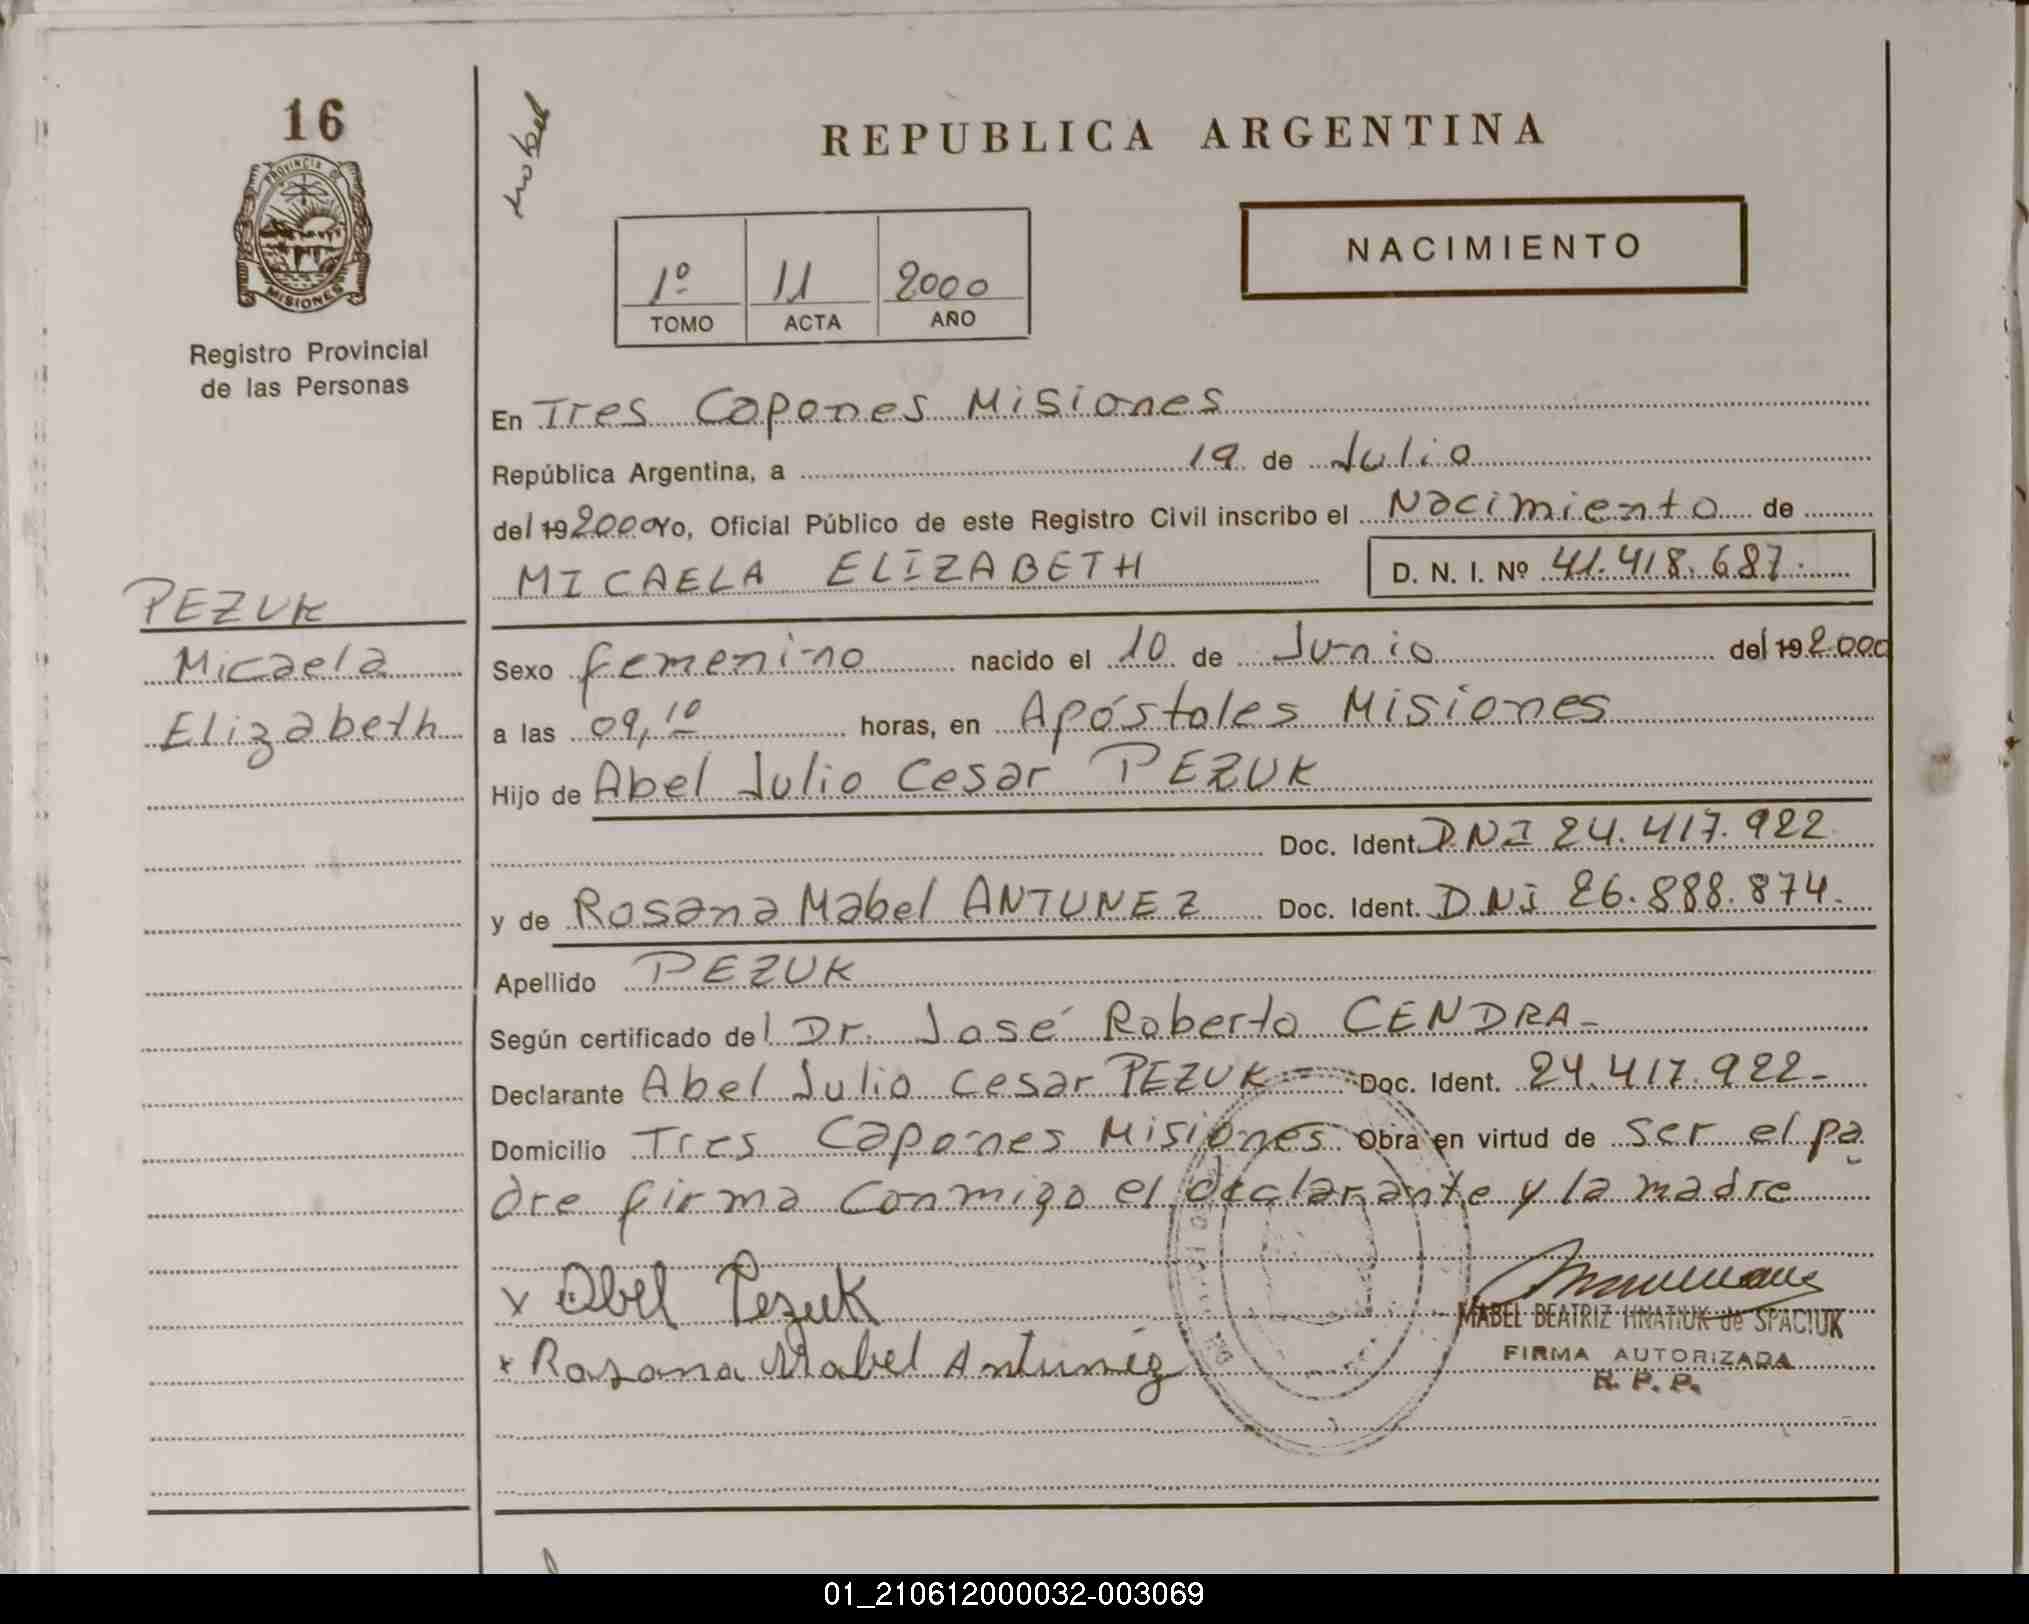 16
PROVINCIA DE
MISIONES
Registro Provincial
de las Personas
PEZUK
Micaela
Elizabeth
REPUBLICA ARGENTINA
NACIMIENTO
1º 11 2000
TOMO ACTA AÑO
En Tres Capones Misiones
República Argentina, a 19 de Julio
del 19 2000 Yo, Oficial Público de este Registro Civil inscribo el Nacimiento de
MICAELA ELIZABETH D. N. I. Nº 41.418.687.
Sexo femenino nacido el 10 de Junio del 19 2000
a las 09,10 horas, en Apóstoles Misiones
Hijo de Abel Julio Cesar PEZUK
Doc. Ident. DNI 24.417.922
y de Rosana Mabel ANTUNEZ Doc. Ident. DNI 26.888.874.
Apellido PEZUK
Según certificado del Dr. José Roberto CENDRA-
Declarante Abel Julio Cesar PEZUK Doc. Ident. 24.417.922-
Domicilio Tres Capones Misiones Obra en virtud de ser el pa
dre firma conmigo el declarante y la madre
x Abel Pezuk
MABEL BEATRIZ HNATIUK de SPACIUK
x Rosana Mabel Antunéz
FIRMA AUTORIZADA
R. P. P.
01_210612000032-003069